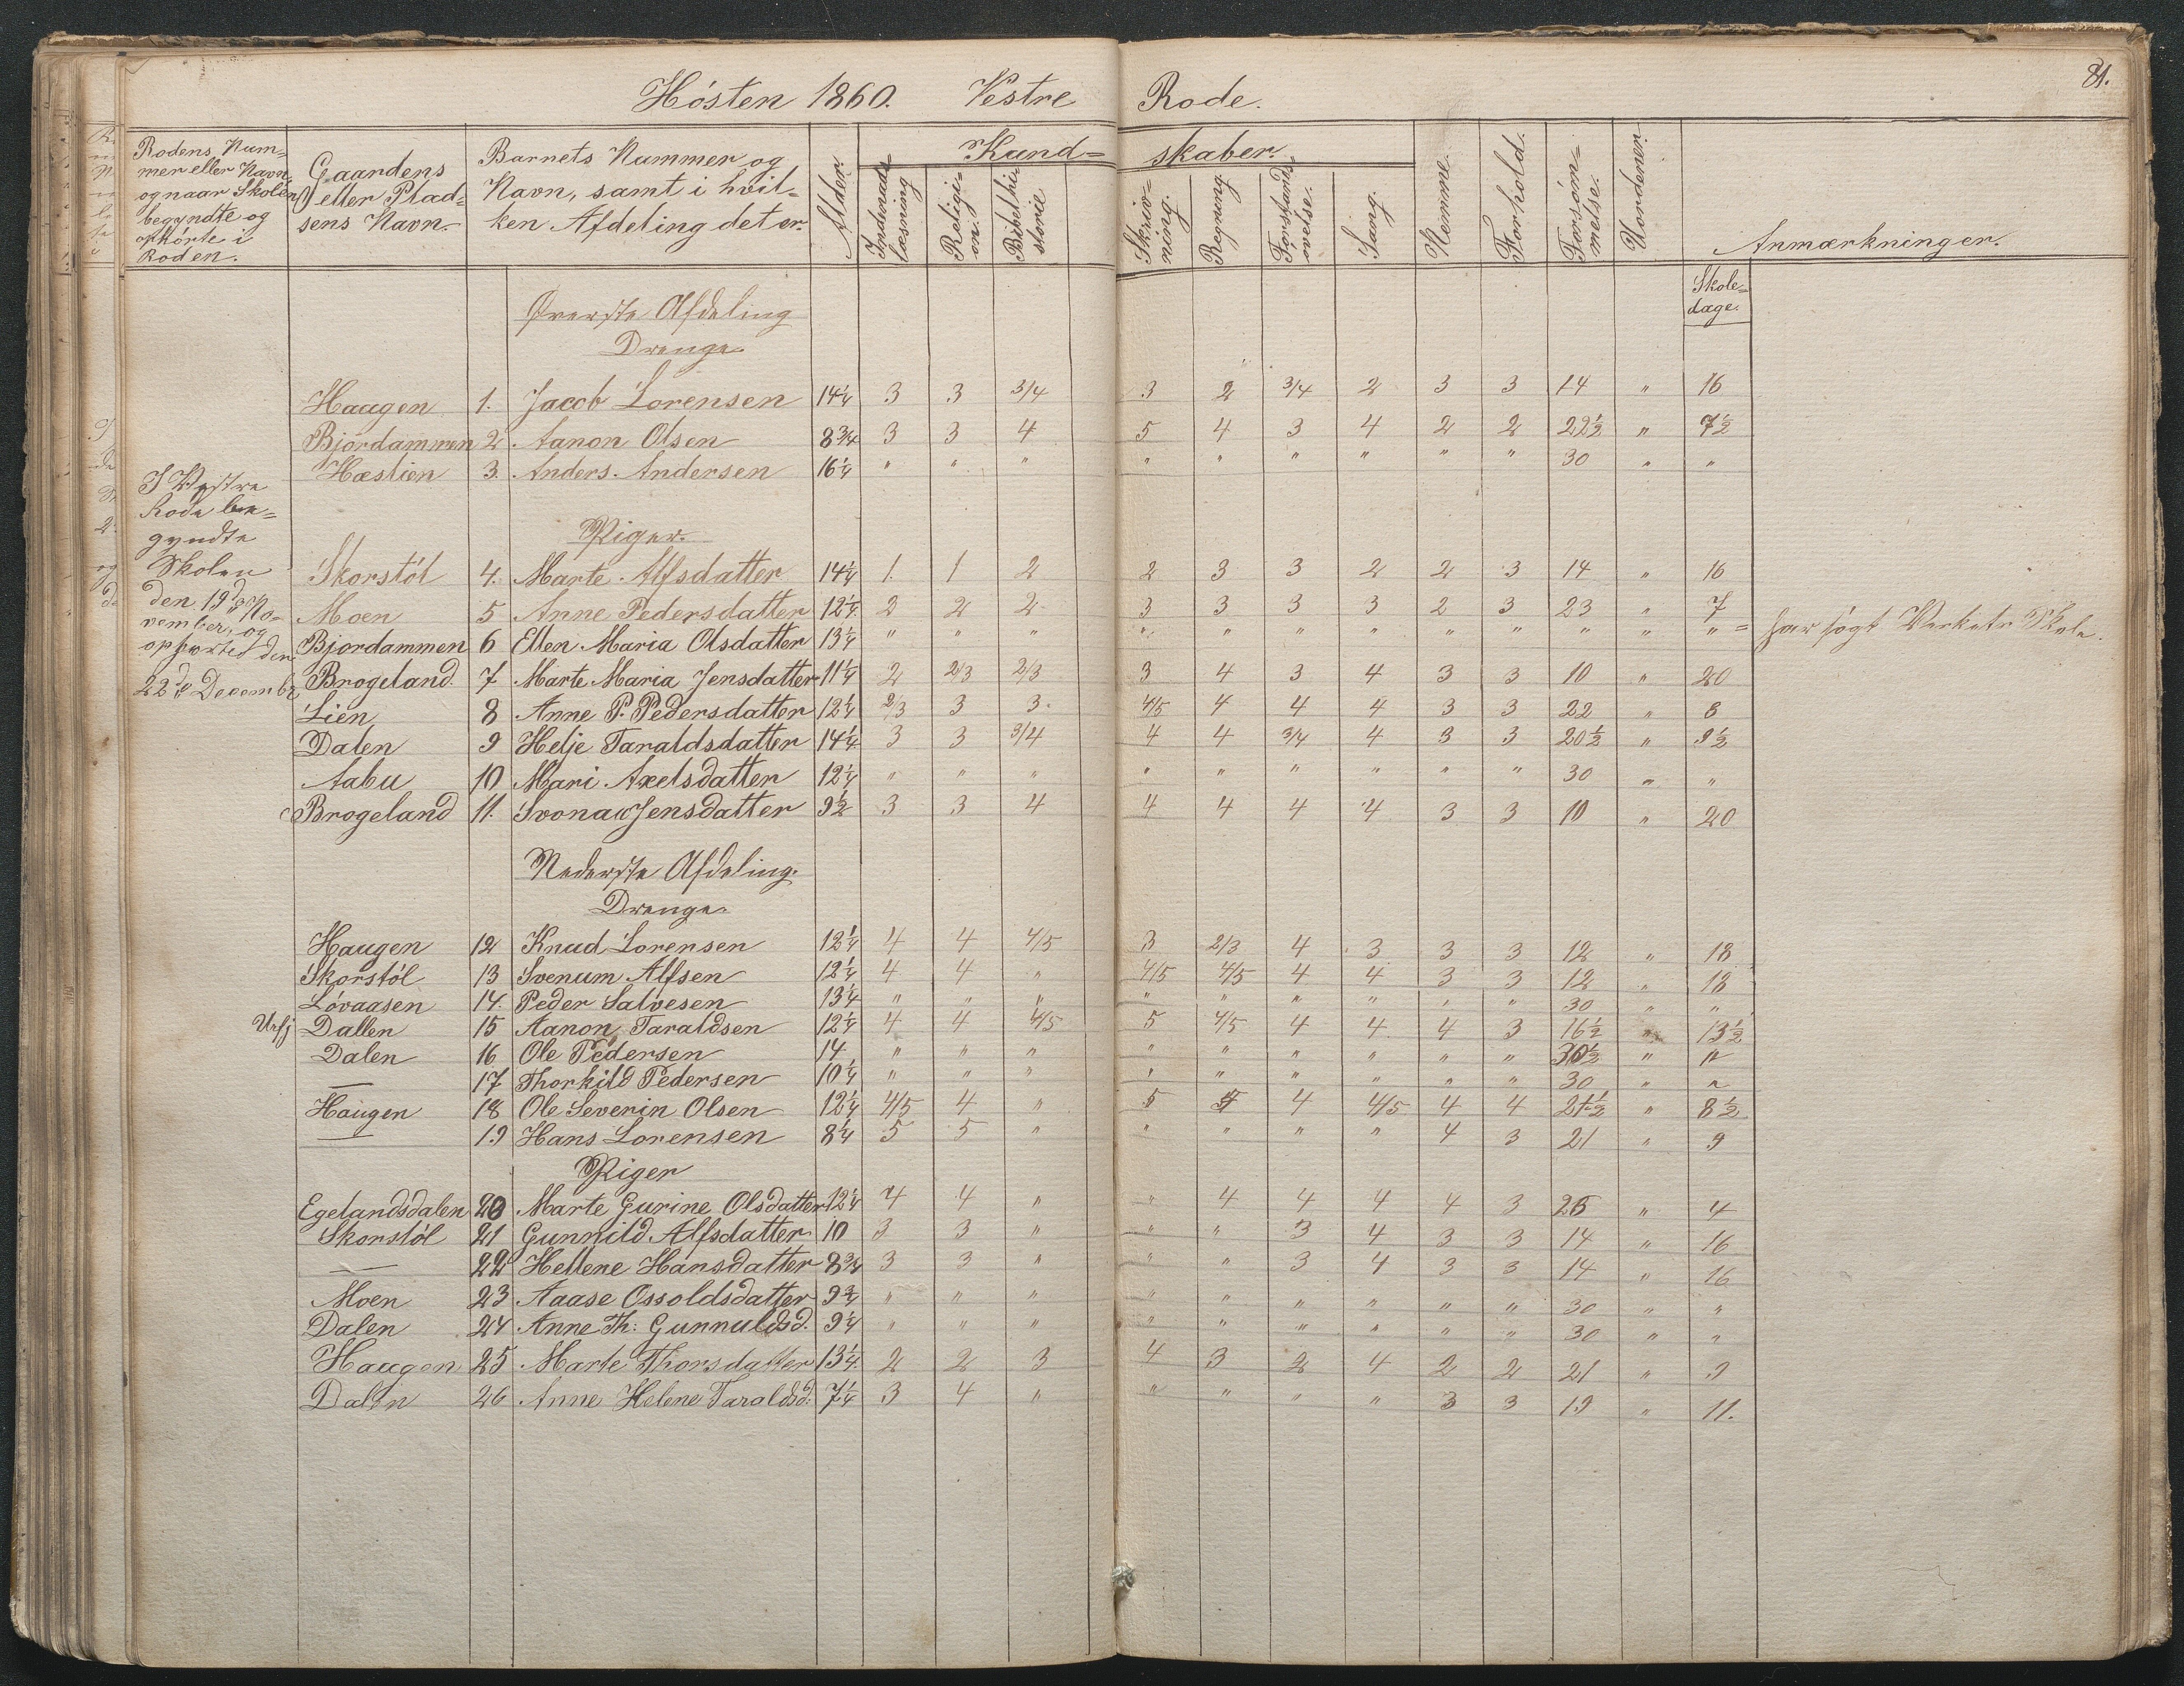 81.
Hósten 1860. Vestre Rode.
Rodens Num=
mer eller Navn,
og naar Skolen
begyndte og
ophórte i
Roden.
Gaardens
eller Plad=
sens Navn.
Barnets Nummer og
Navn, samt i hvil=
ken Afdeling det er.
Alder.
Kund= skaber.
Indenads=
læsning
Religi=
on.
Bibelhi=
storie
Skriv=
ning.
Regning.
Forstands=
øvelse.
Sang.
Nemme.
Forhold.
Forsøm=
melse.
Vordener.
Anmærkninger.
Skole=
dage.
Øverste Afdeling
Drenge
Haagen 1. Jacob Lorensen 14¼ 3 3 3/4 3 2 3/4 2 3 3 14 " 16
Bjordammen 2. Aanon Olsen 8¾ 3 3 4 5 4 3 4 2 2 22½ " 7½
Hæstien 3. Anders. Andersen 16¼ " " " " " " " " " 30 " "
I Vestre
Rode be=
gyndte
Skolen
den 19de No=
vember, og
ophørted den
22de Decembr
Piger.
Skorstól 4. Marte Alfsdatter 14¼ 1. 1 2 2 3 3 2 2 3 14 " 16
Moen 5 Anne Pedersdatter 12¼ 2 2 2 3 3 3 3 2 3 23 " 7
Bjordammen 6 Ellen Maria Olsdatter 13¼ " " " " " " " " " " " " = har søgt Verkets Skole.
Brogeland. 7 Marte Maria Jensdatter 11¼ 2 2/3 2/3 3 4 3 4 3 3 10 " 20
Lien 8 Anne P. Pedersdatter 12¼ 2/3 3 3. 4/5 4 4 4 3 3 22 " 8
Dalen 9 Helje Taraldsdatter 14¼ 3 3 3/4 4 4 3/4 4 3 3 20½ " 9½
Aabu 10 Mari Axelsdatter 12¼ " " " " " " " " " 30 " "
Brogeland 11. Svonau Jensdatter 9½ 3 3 4 4 4 4 4 3 3 10 " 20
Nederste Afdeling.
Drenge
Haugen 12 Knud Lorensen 12¼ 4 4 4/5 3 2/3 4 3 3 3 12 " 18
Skorstól 13 Svenum Alfsen 12¼ 4 4 " 4/5 4/5 4 4 3 3 12 " 18
Lóvaasen 14. Peder Salvesen 13¼ " " " " " " " " " 30 " "
Dallen 15 Aanon Taraldsen 12¼ 4 4 4/5 5 4/5 4 4 4 3 16½ " 13½
Dalen 16 Ole Pedersen 14 " " " " " " " " " 30½ " "
— 17 Thorkild Pedersen 10¼ " " " " " " " " " 30 " "
Haugen 18 Ole Severin Olsen 12¼ 4/5 4 " 5 5 4 4/5 4 4 21½ " 8½
— 19 Hans Lorensen 8¼ 5 5 " " " " " 4 3 21 " 9
Piger
Egelandsdalen 20 Marte Gurine Olsdatter 12¼ 4 4 " " 4 4 4 4 3 26 " 4
Skorstól 21 Gunnild Alfsdatter 10 3 3 " " " 3 4 3 3 14 " 16
— 22 Hellene Hansdatter 8¾ 3 3 " " " 3 4 3 3 14 " 16
Moen 23 Aaase Ossoldsdatter 9¾ " " " " " " " " " 30 " "
Dalen 24 Anne Th: Gunnuldsd. 9¼ " " " " " " " " " 30 " "
Haugen 25 Marte Thorsdatter 13¼ 2 2 3 4 3 2 4 2 2 21 " 9
Dalen 26 Anne Helene Taraldsd: 7¼ 3 4 " " " " " 3 3 19 " 11.